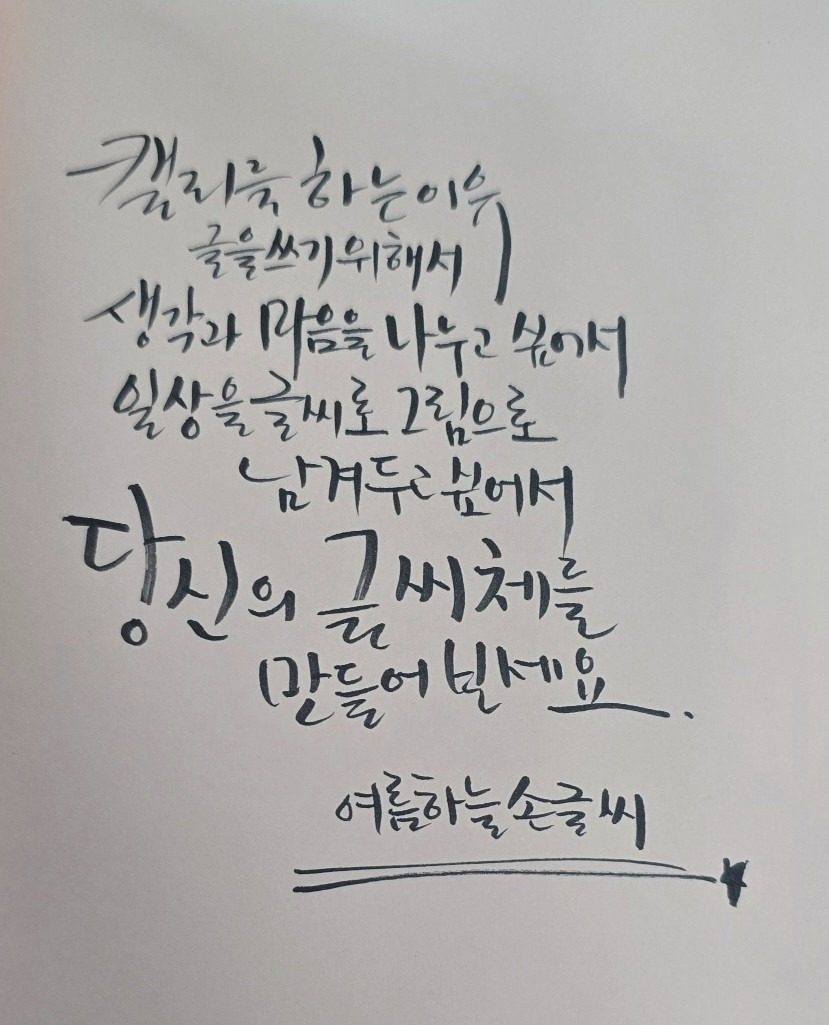 캘리를 하는 이유
글을 쓰기 위해서
생각과 마음을 나누고 싶어서
일상을 글씨로 그림으로
남겨두고 싶어서
당신의 글씨체를
만들어 보세요.
여름하늘 손글씨